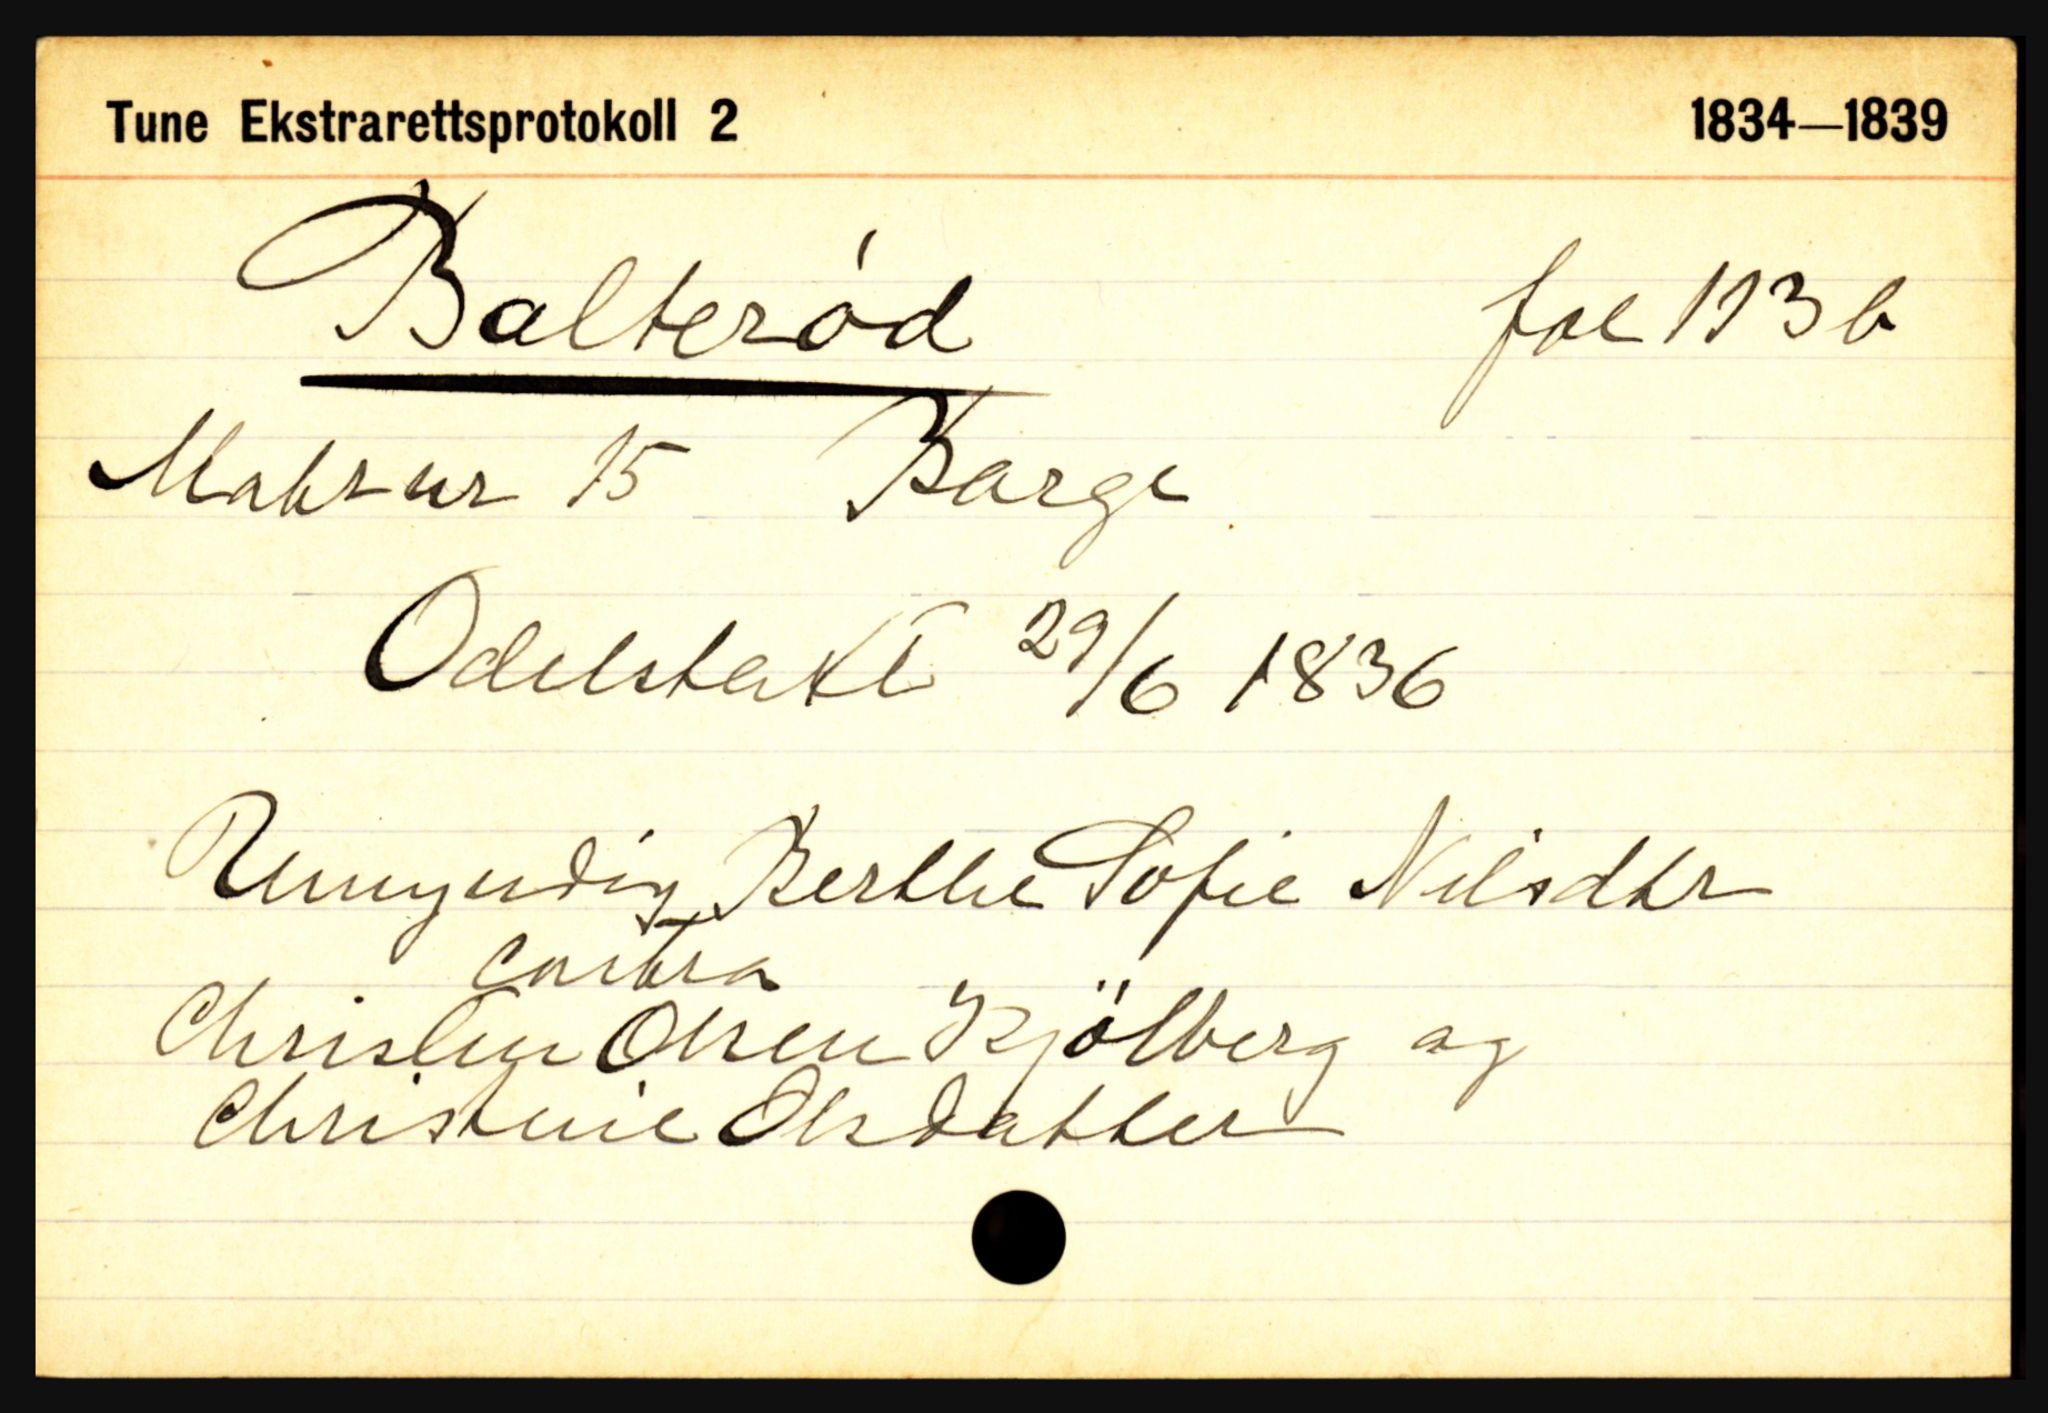 Tune Ekstrarettsprotokoll 2 1834—1839
Balterød fol 113 b
Matr nr 15 Borge
Odelstakt 29/6 1836
Umyndig Berthe Sofie Nilsdtr
contra
Christen Olsen Kjölberg og
Christine Olsdatter